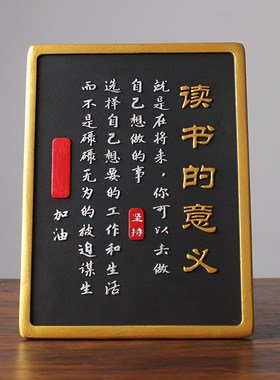 读书的意义
就是在将来，你可以去做
自己想做的事
坚持
选择自己想要的工作和生活
而不是碌碌无为的被迫谋生
加油